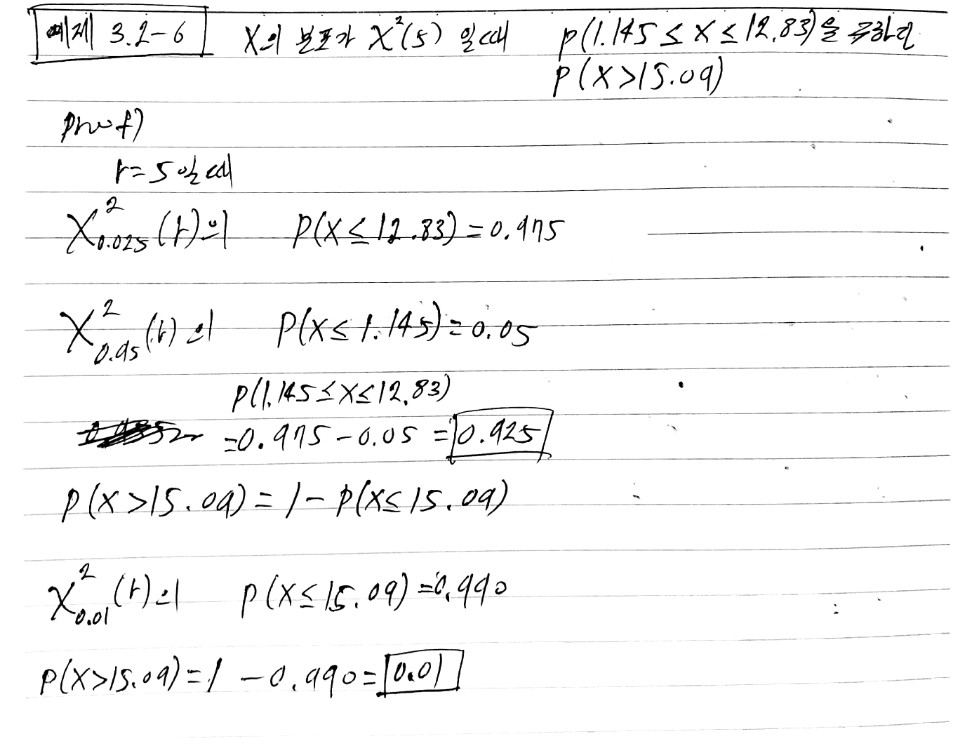 예제 3.2-6 X의 분포가 X²(5) 일때 P(1.145 ≤ X ≤ 12.83)을 구하라
P(X>15.09)
proof)
r=5일때
X²₀.₀₂₅(r)의 P(X≤12.83)=0.975
X²₀.₉₅(r)의 P(X≤1.145)=0.05
P(1.145≤X≤12.83)
=0.975-0.05=0.925
P(X>15.09)=1-P(X≤15.09)
X²₀.₀₁(r)의 P(X≤15.09)=0.990
P(X>15.09)=1-0.990=0.01